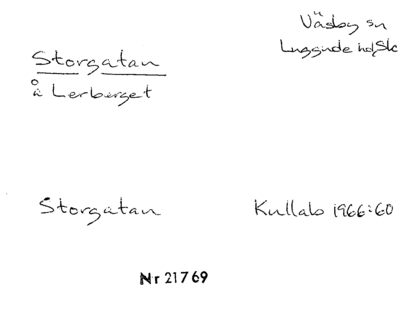 Väsby sn
Luggude hd, Sk
Storgatan
å Lerberget
Storgatan
Kullabo 1966:60
Nr 21769